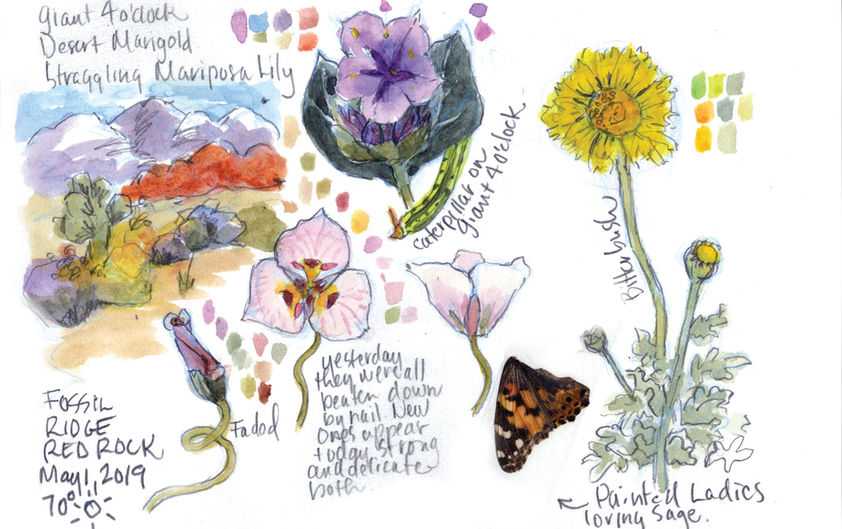 Giant 4 o'clock
Desert Marigold
Straggling Mariposa Lily
caterpillar on
giant 4 o'clock
Bitterbush
Faded
yesterday
they were all
beaten down
by hail. New
ones appear
today, strong
and delicate
both.
FOSSIL
RIDGE
RED ROCK
May 1, 2019
70°
← Painted Ladies
loving sage.